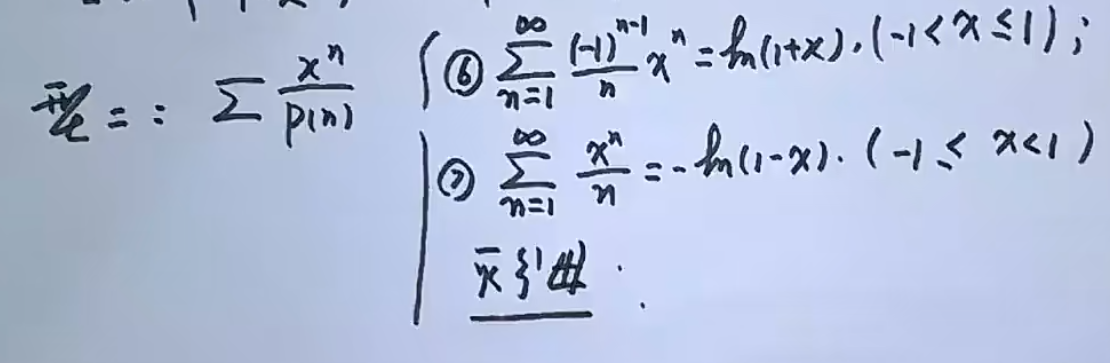 型二: ∑ xⁿ/P(n)
⑥ ∑_{n=1}^{∞} (-1)^{n-1}/n xⁿ = ln(1+x). (-1<x≤1);
⑦ ∑_{n=1}^{∞} xⁿ/n = -ln(1-x). (-1≤x<1)